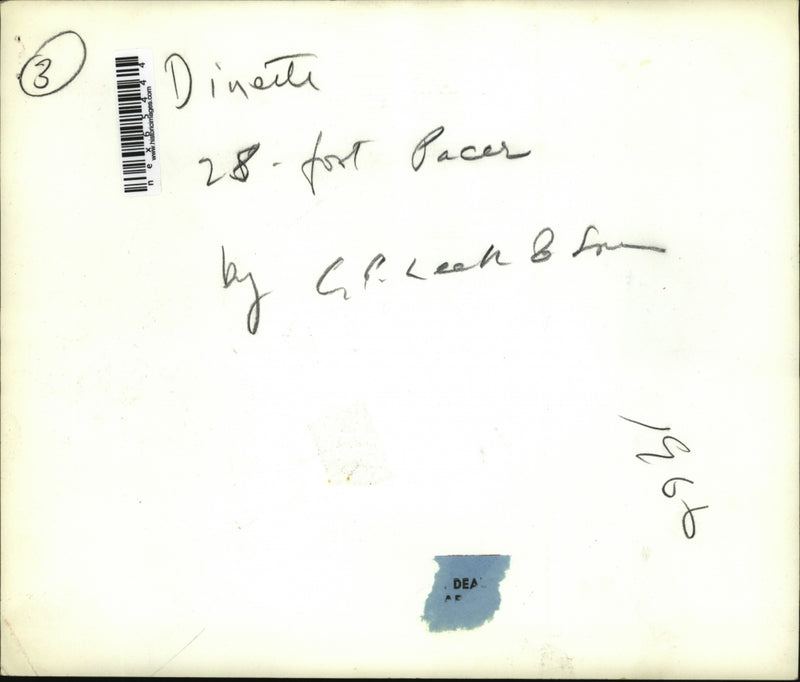 3
Dinette
28-foot Pacer
by C.P. Leek & Sons
1962
nex65444
www.historicimages.com
DEA